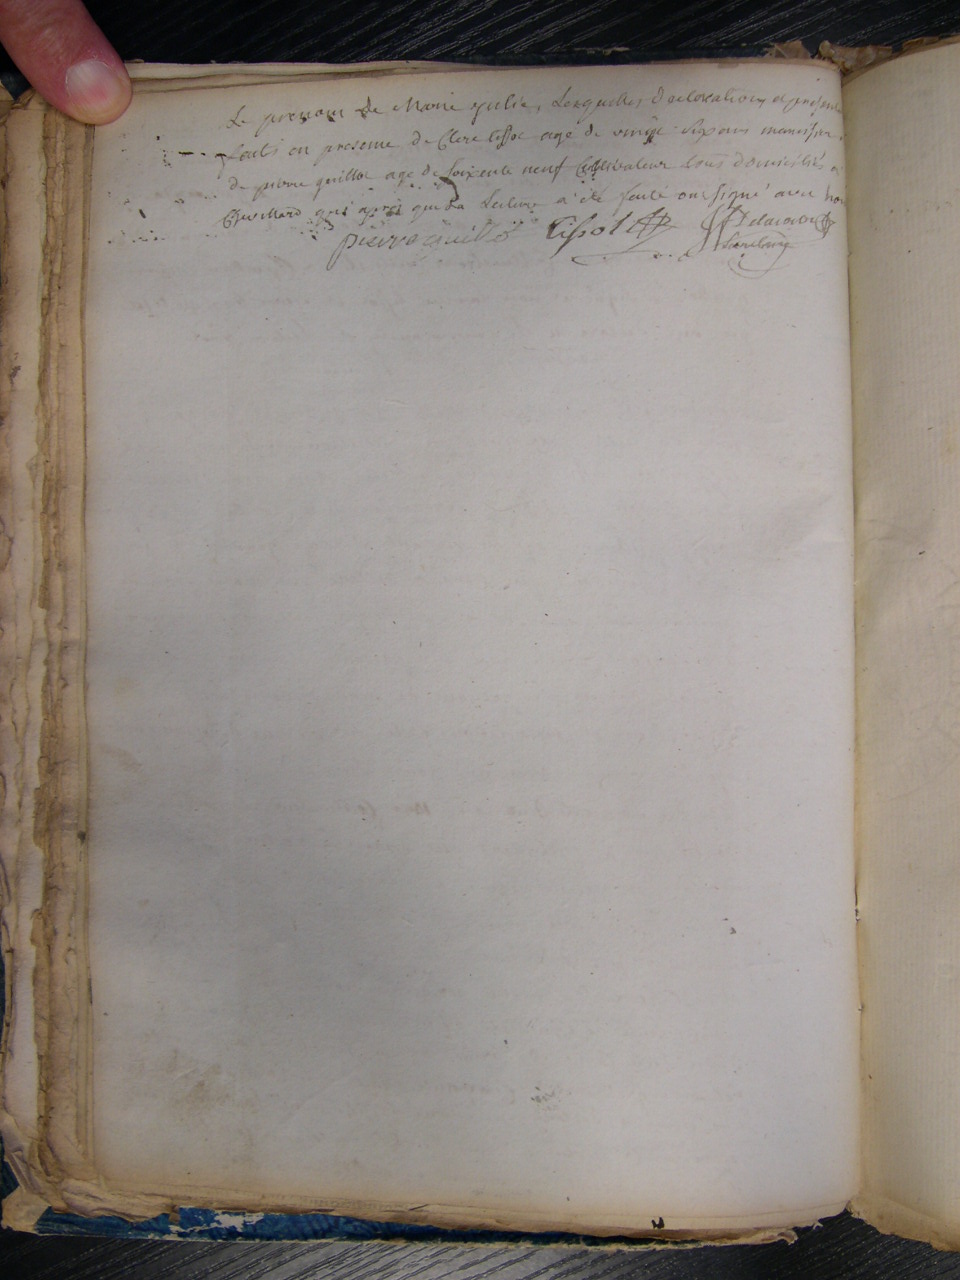 Le prenom de Marie julie, Lesquelles declarations et present
faits en presence de Clere tissot age de vingt six ans menuisier
de pierre guillot age de soixente neuf Cultivateur tous domiciliés a
Chevillard qui après que la Lecture a été faite ont signé avec nous
pierre guillot tissot Delacroix